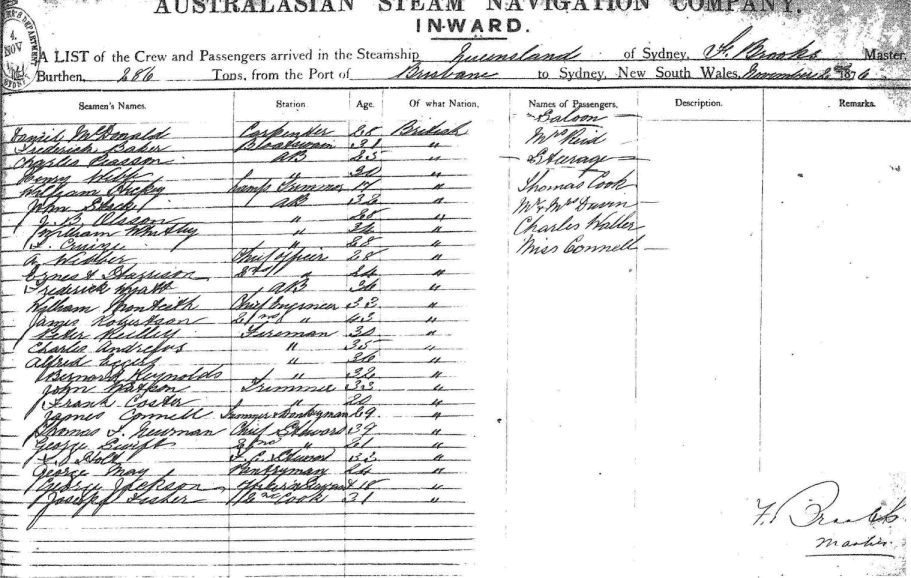 AUSTRALASIAN STEAM NAVIGATION COMPANY.
IN-WARD.
A LIST of the Crew and Passengers arrived in the Steamship Queensland of Sydney, F. Brooks Master,
Burthen, 286 Tons, from the Port of Brisbane to Sydney, New South Wales, November 2nd 1876
Seamen's Names. Station Age. Of what Nation, Names of Passengers, Description. Remarks.
Saloon
Daniel McDonald Carpenter 28 British Mrs Reid
Frederick Baker Boatswain 31 "
Charles Pearson AB 25 " Steerage
Henry 30 "
William Hickey Lamps Trimmer 17 " Thomas Cook
John AB 32 " Mr & Mrs Davin
J. B. Olsson " 28 "
William Whitley " 36 " Charles Waller
" 28 " Miss Connell
A Webber Chief Officer 28 "
Harrison 2nd " 24 "
Frederick Wyatt AB 36 "
William Monteith Chief Engineer 33 "
James Robertson 2nd " 43 "
Peter Reilley Fireman 30 "
Charles Andrews " 35 "
Alfred Eccles " 36 "
Bernard Reynolds " 32 "
John Watson Trimmer 33 "
Frank Coster " 20 "
James Connell Trimmer & Donkeyman 29 "
Thomas J. Newman Chief Steward 39 "
George Swift 2nd " 21 "
Holt F. C. Steward 32 "
George May Pantryman 24 "
George Jackson 18 "
Joseph Fisher Cook 31 "
F. Brooks
Master.